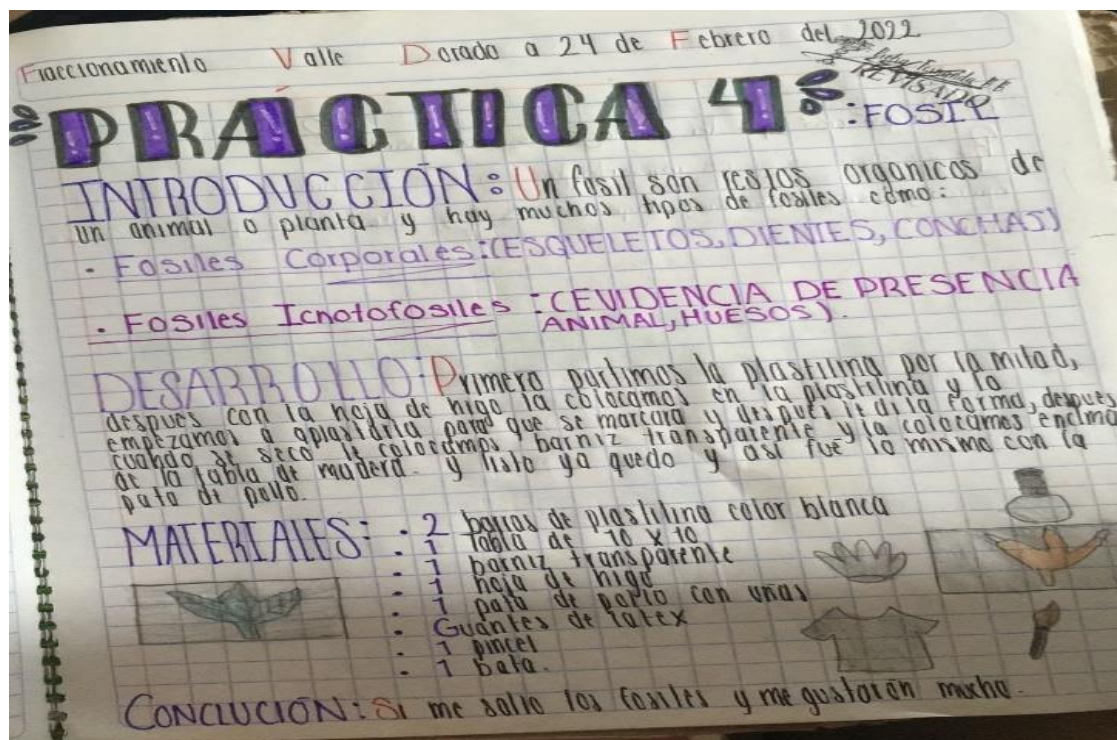 Fraccionamiento Valle Dorado a 24 de Febrero del 2022
REVISADO
PRÁCTICA 4 :FOSIL
INTRODUCCIÓN: Un fosil son restos organicos de
un animal o planta y hay muchos tipos de fosiles como:
· Fosiles Corporales:(ESQUELETOS, DIENTES, CONCHAS)
· Fosiles Icnotofosiles :(EVIDENCIA DE PRESENCIA
ANIMAL, HUESOS).
DESARROLLO: Primero partimos la plastilina por la mitad,
despues con la hoja de higo la colocamos en la plastilina y lo
empezamos a aplastarla para que se marcara y despues le di la forma, despues
cuando se seco le colocamos barniz transparente y la colocamos encima
de la tabla de madera. y listo ya quedo y asi fue lo mismo con la
pata de pollo.
MATERIALES: · 2 barras de plastilina color blanca
· 1 tabla de 10 x 10
· 1 barniz transparente
· 1 hoja de higo
· 1 pata de pollo con uñas
· Guantes de latex
· 1 pincel
· 1 bata.
CONCLUCIÓN: Si me salio los fosiles y me gustaron mucho.